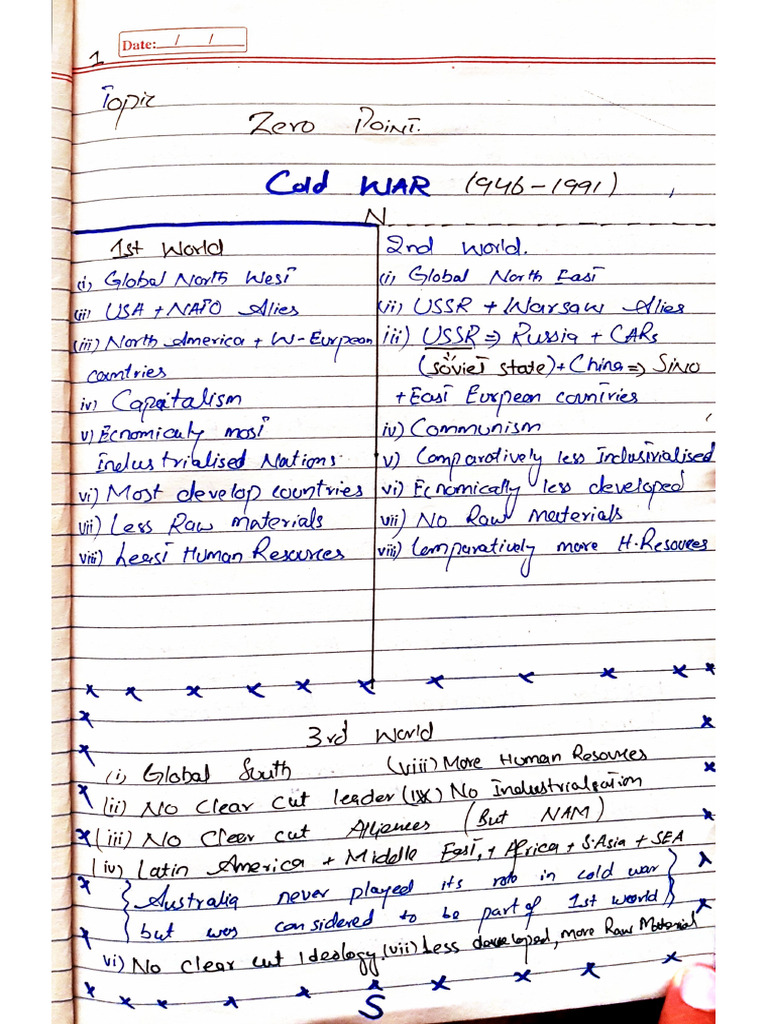 Date: / /
1
Topic
Zero Point.
Cold WAR (1946-1991)
N
1st World
(i) Global North West
(ii) USA + NATO Alies
(iii) North America + W-Eurpean
countries
iv) Capaitalism
v) Ecnomicaly most
industrialised Nations
vi) Most develop countries
vii) Less Raw materials
viii) Least Human Resources
2nd World.
(i) Global North East
(ii) USSR + Warsaw Alies
iii) USSR => Russia + CARs
(soviet state) + China => SINO
+ East Eurpean countries
iv) Communism
v) Comparatively less industrialised
vi) Ecnomically less developed
vii) No Raw materials
viii) Comparatively more H. Resources
3rd World
(i) Global South (viii) More Human Resources
(ii) No clear cut leader (ix) No Industrialization
(iii) No cleer cut Alliences (But NAM)
(iv) Latin America + Middle East, + Africa + S.Asia + SEA
{ Australia never played its role in cold war }
{ but was considered to be part of 1st world }
vi) No clear cut Ideology, (vii) Less developed, more Raw Material
S